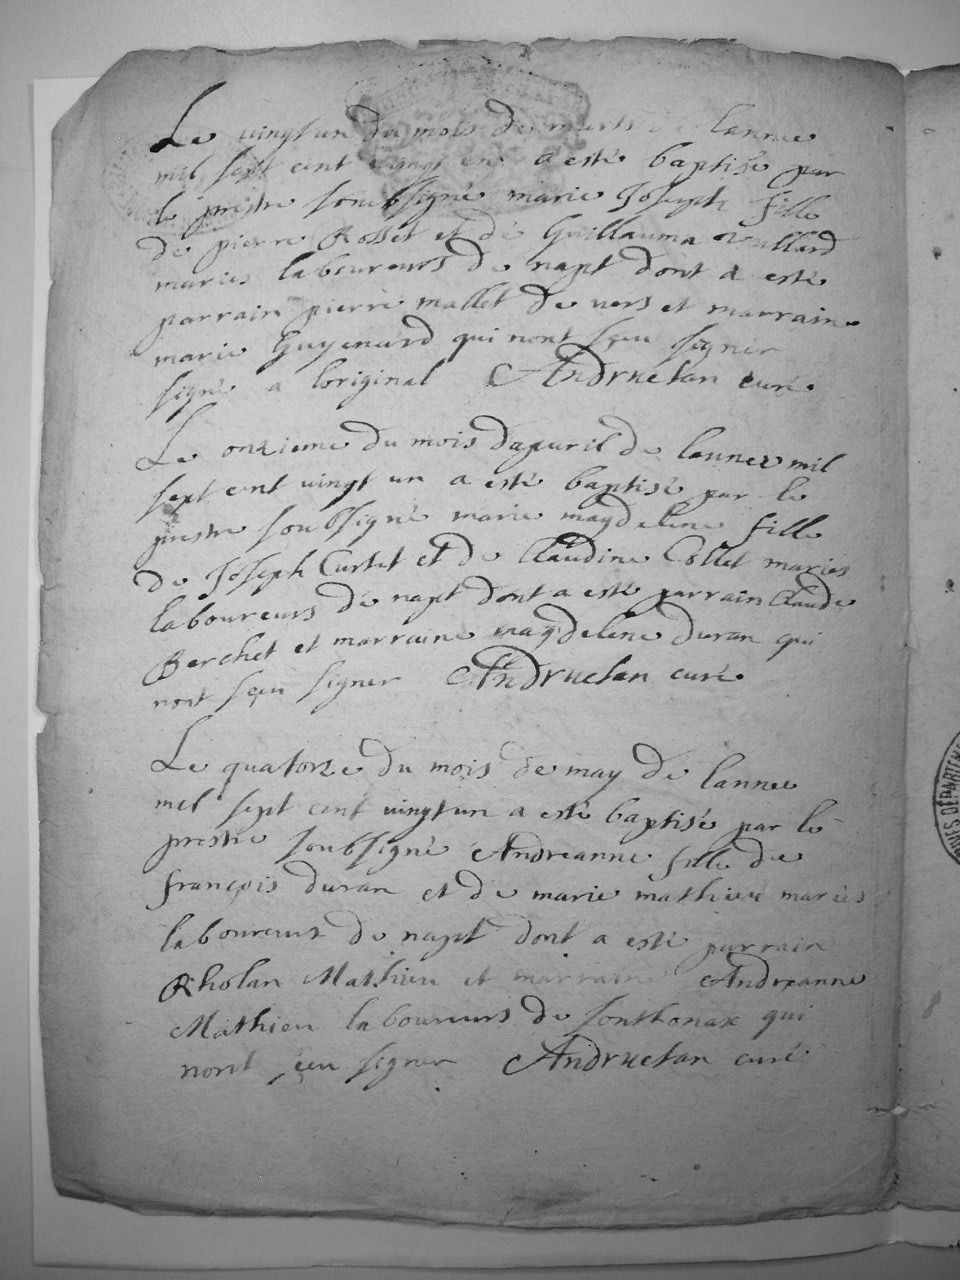 Le vingt un du mois de marts de lannee
mil sept cent vingt un a esté baptisé par
le prestre soubsigné marie Joseph fille
de pierre Rosset et de Guillauma Vullard
mariés laboureurs de napt dont a esté
parrain pierre mallet de vers et marraine
marie Guyenard qui nont sçeu signer
signé a loriginal Andruetan curé.
Le onzieme du mois dapuril de lannee mil
sept cent vingt un a esté baptisé par le
prestre soubsigné marie magdelene fille
de Joseph Curtet et de Claudine Collet mariés
laboureurs de napt dont a esté parrain Claude
Berchet et marraine magdelene duran qui
nont sçeu signer Andruetan curé.
Le quatorze du mois de may de lannee
mil sept cent vingt un a esté baptisé par le
prestre soubsigné Andreanne fille de
françois duran et de marie mathieu mariés
laboureurs de napt dont a esté parrain
Rholan Mathieu et marraine Andreanne
Mathieu laboureurs de sonthonax qui
nont sçeu signer Andruetan curé